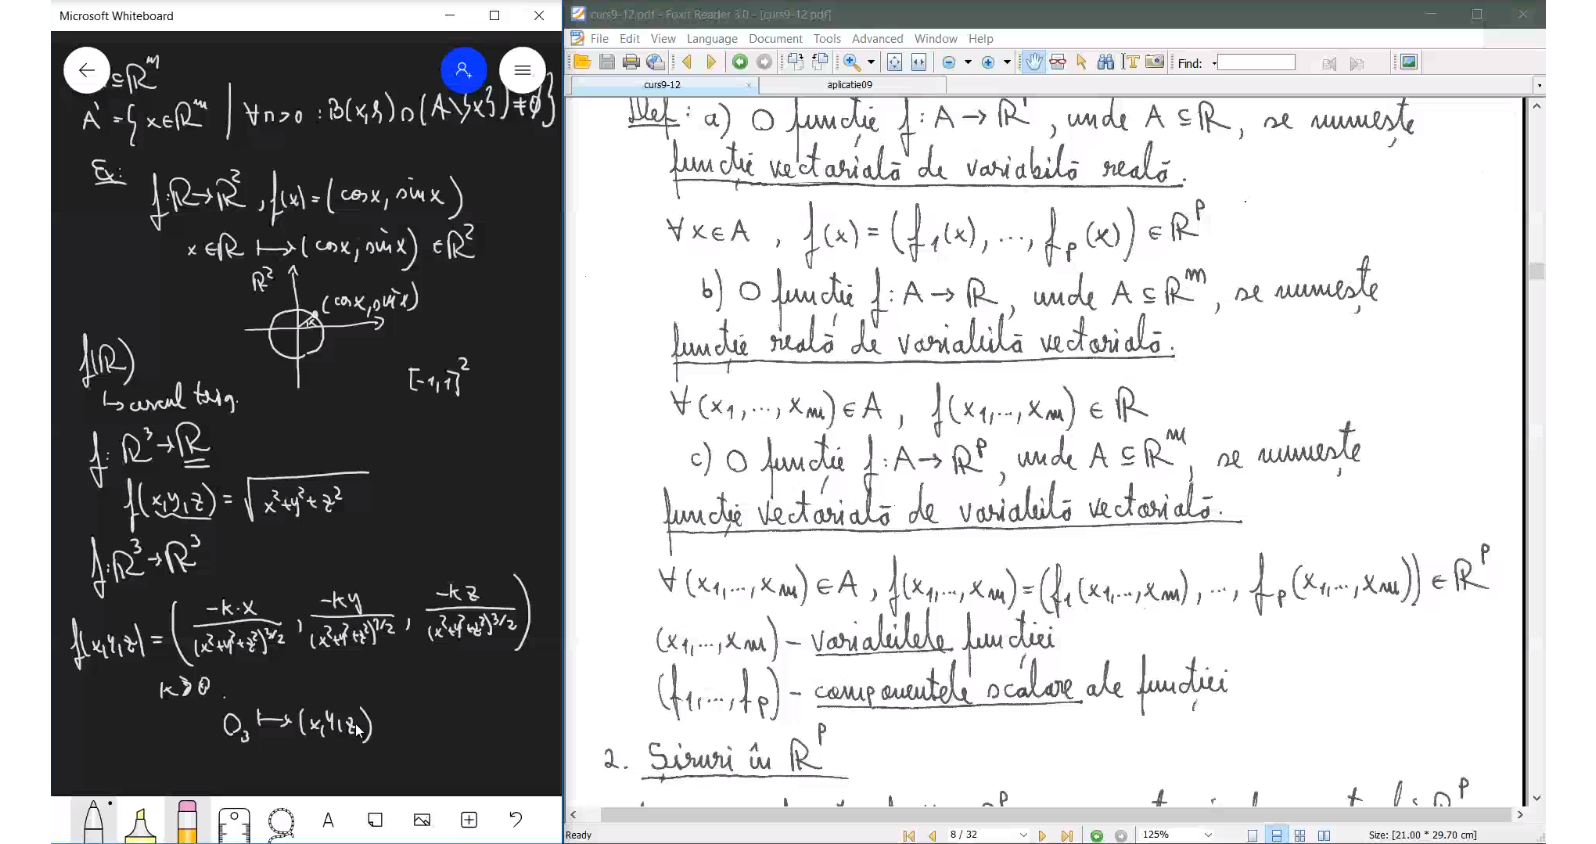 Microsoft Whiteboard
⊆ℝᵐ
A' = { x∈ℝᵐ | ∀r>0 : B(x,r) ∩ (A\{x}) ≠ ∅ }
Ex:
f:ℝ→ℝ², f(x)=(cosx, sinx)
x∈ℝ ⟼ (cosx, sinx) ∈ℝ²
ℝ²
(cosx, sinx)
x
f(ℝ)
[-1,1]²
↳ cercul trig.
f: ℝ³→ℝ
f(x,y,z) = √x²+y²+z²
f:ℝ³→ℝ³
f(x,y,z) = ( -k·x/(x²+y²+z²)^3/2 , -ky/(x²+y²+z²)^3/2 , -kz/(x²+y²+z²)^3/2 )
O₃ ⟼ (x,y,z)
A
curs9-12.pdf - Foxit Reader 3.0 - [curs9-12.pdf]
File Edit View Language Document Tools Advanced Window Help
Find:
curs9-12
aplicatie09
Def: a) O funcție f: A → ℝᵖ, unde A ⊆ ℝ, se numește
funcție vectorială de variabilă reală.
∀x∈A, f(x) = (f₁(x), ..., fₚ(x)) ∈ ℝᵖ
b) O funcție f: A → ℝ, unde A ⊆ ℝᵐ, se numește
funcție reală de variabilă vectorială.
∀(x₁,...,xₘ)∈A, f(x₁,...,xₘ) ∈ ℝ
c) O funcție f: A → ℝᵖ, unde A ⊆ ℝᵐ, se numește
funcție vectorială de variabilă vectorială.
∀(x₁,...,xₘ)∈A, f(x₁,...,xₘ) = (f₁(x₁,...,xₘ), ..., fₚ(x₁,...,xₘ)) ∈ ℝᵖ
(x₁,...,xₘ) - variabilele funcției
(f₁,...,fₚ) - componentele scalare ale funcției
2. Șiruri în ℝᵖ
Ready
8 / 32
125%
Size: [21.00 * 29.70 cm]